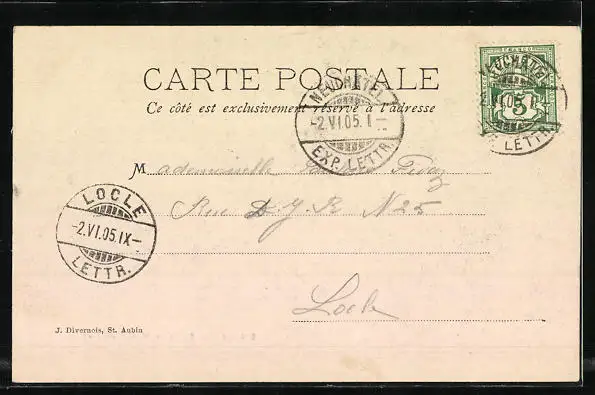 CARTE POSTALE
Ce côté est exclusivement réservé à l'adresse
FRANCO
5
NEUCHÂTEL
-2.VI.05. I-
EXP. LETTR.
NEUCHÂTEL
2.VI.05. I
EXP. LETTR.
Mademoiselle
Rue D. J. R N 25
LOCLE
-2.VI.05.IX-
LETTR.
Locle
J. Divernois, St. Aubin